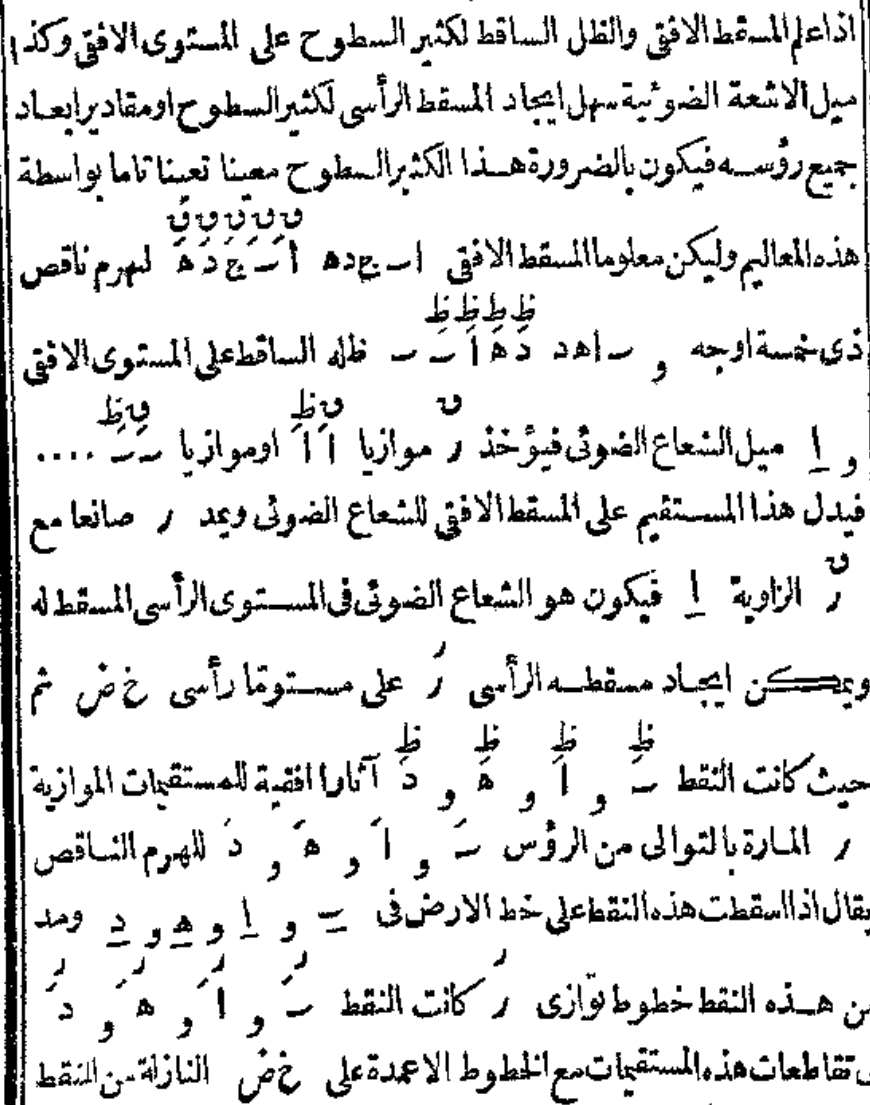 اذاعلم المسقط الافقى والظل الساقط لكثير السطوح على المستوى الافقى وكذا
ميل الاشعة الضوئية سهل ايجاد المسقط الرأسى لكثير السطوح اومقادير ابعاد
جميع رؤسه فيكون بالضرورة هذا الكثير السطوح معينا تعينا تاما بواسطة
هذه المعاليم وليكن معلوما المسقط الافقى اٮجده اَٮَجَدَهَ لهرم ناقص
ذى خمسة اوجه و ٮاهد دَهَاَٮَٮ ظله الساقط على المستوى الافقى
و ا ميل الشعاع الضوئى فيؤخذ ر موازيا اَاَ اوموازيا ٮَٮَ ....
فيدل هذا المستقيم على المسقط الافقى للشعاع الضوئى ويمد ر صانعا مع
ر الزاوية ا فيكون هو الشعاع الضوئى فى المستوى الرأسى المسقط له
ويمكن ايجاد مسقطه الرأسى ر على مستوما رأسى خ ض ثم
حيث كانت النقط ٮَ و اَ و هَ و دَ آثارا افقية للمستقيمات الموازية
ر المارة بالتوالى من الرؤس ٮَ و اَ و هَ و دَ للهرم الناقص
يقال اذا اسقطت هذه النقط على خط الارض فى ٮ و ا و ه و د ومد
من هذه النقط خطوط توازى ر كانت النقط ٮَ و اَ و هَ و دَ
تقاطعات هذه المستقيمات مع الخطوط الاعمدة على خ ض النازلة من النقط